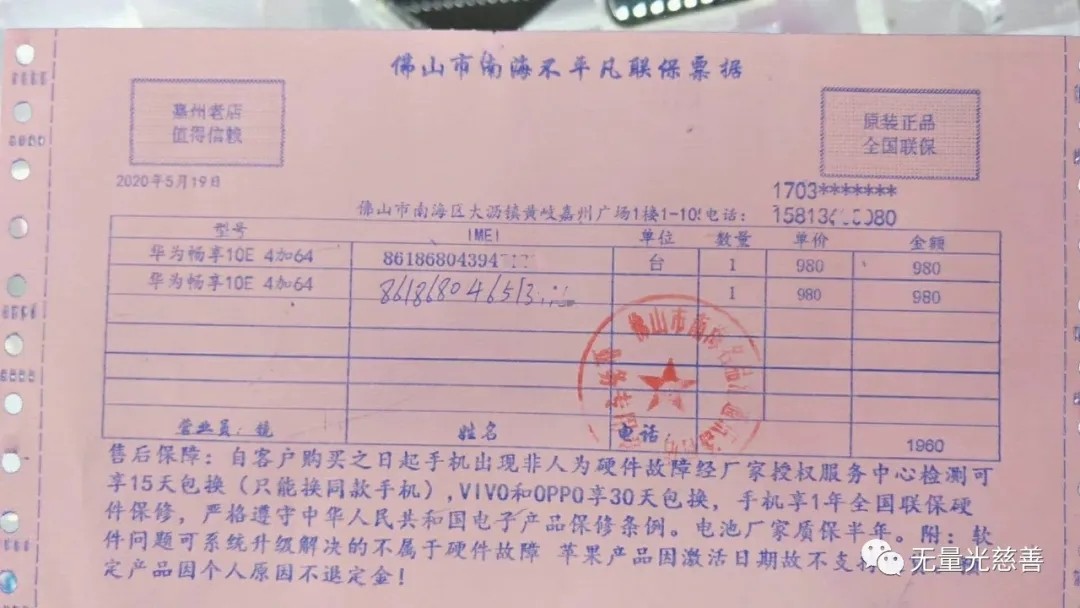 佛山市南海不平凡联保票据
嘉州老店
值得信赖
原装正品
全国联保
2020年5月19日
1703*******
佛山市南海区大沥镇黄岐嘉州广场1楼1-105电话: 15813 080
型号 IMEI 单位 数量 单价 金额
华为畅享10E 4加64 86186804394 台 1 980 980
华为畅享10E 4加64 86186804653 1 980 980
佛山市南
业务专用
营业员: 镜 姓名 电话: 1960
售后保障: 自客户购买之日起手机出现非人为硬件故障经厂家授权服务中心检测可
享15天包换(只能换同款手机),VIVO和OPPO享30天包换, 手机享1年全国联保硬
件保修, 严格遵守中华人民共和国电子产品保修条例。电池厂家质保半年。附: 软
件问题可系统升级解决的不属于硬件故障 苹果产品因激活日期故不支持
定产品因个人原因不退定金!
无量光慈善